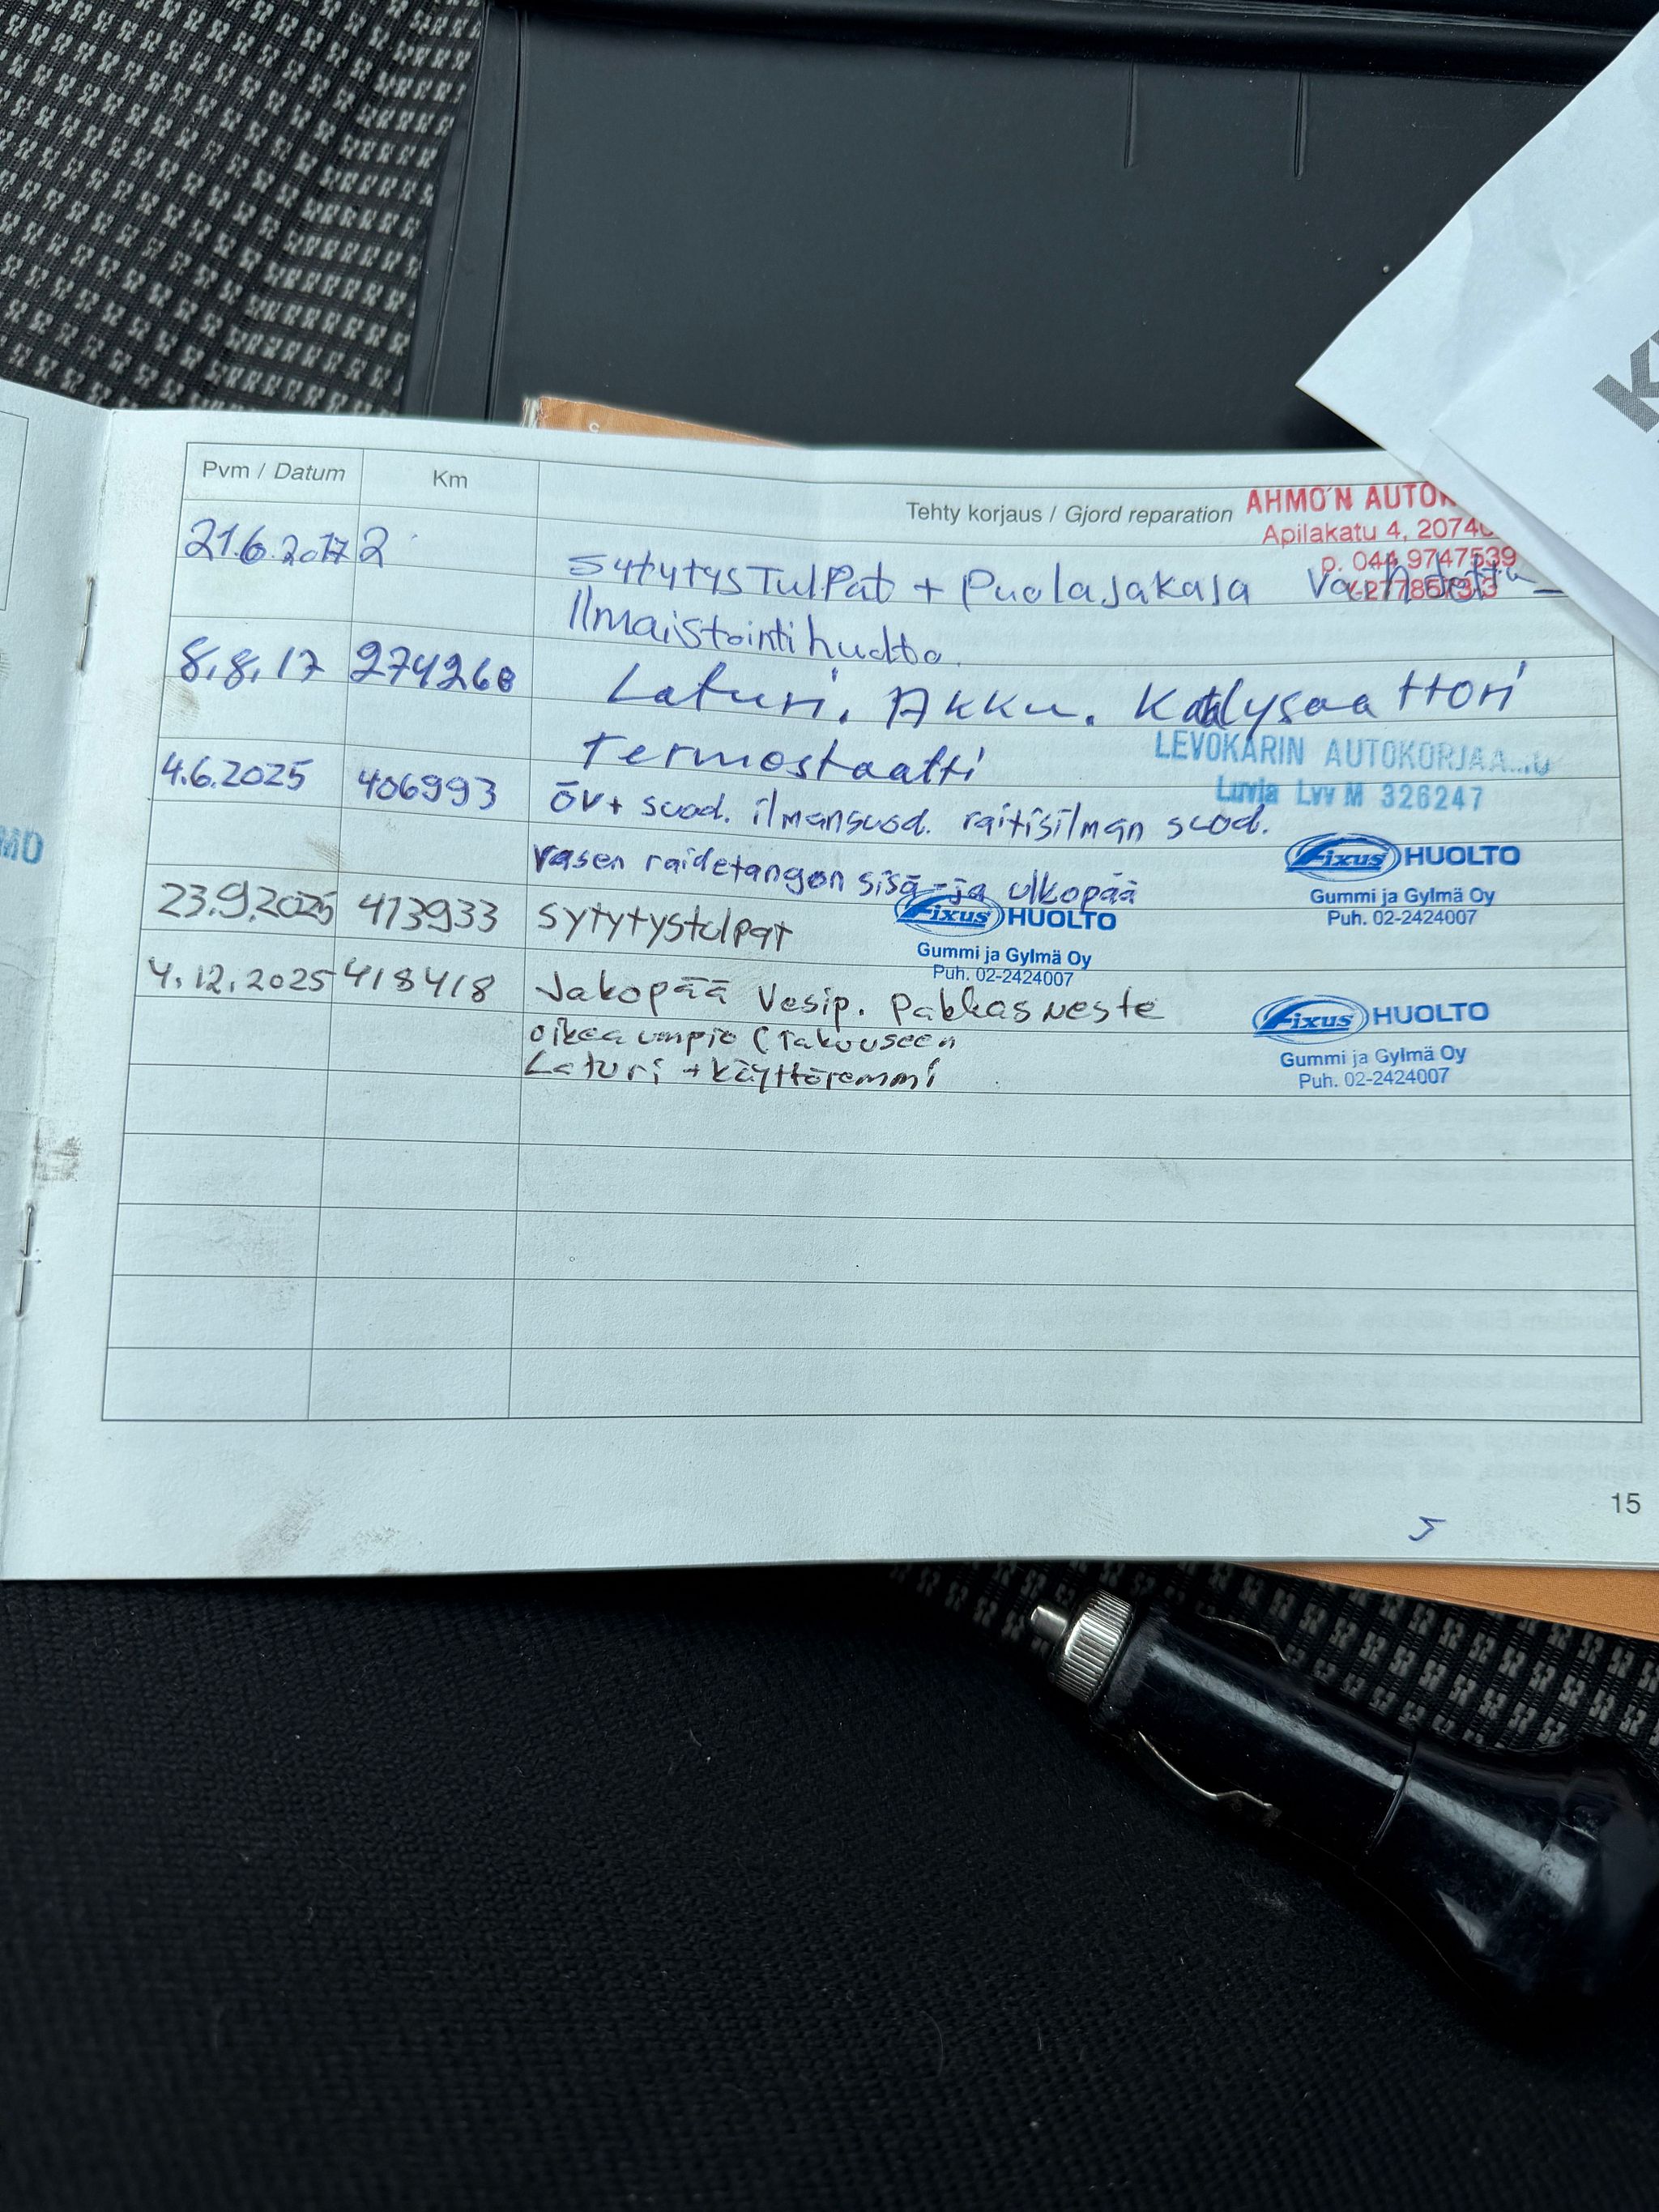 Pvm / Datum
Km
Tehty korjaus / Gjord reparation
AHMO'N AUTOK
Apilakatu 4, 20740
p. 044 9747539
21.6.2017 2
Sytytystulpat + Puolajakaja Vaihdettu
Ilmaistointihuolto.
8.8.17 274260 Laturi, Akku. Katalysaattori
Termostaatti
LEVOKARIN AUTOKORJAA
Luvia Lvv M 326247
4.6.2025 406993 öv+ suod. ilmansuod. raitisilman suod.
vasen raidetangon sisä-ja ulkopää
Fixus HUOLTO
Gummi ja Gylmä Oy
Puh. 02-2424007
23.9.2025 413933 Sytytystulpat
Fixus HUOLTO
Gummi ja Gylmä Oy
Puh. 02-2424007
4.12.2025 418418 Jakopää Vesip. Pakkasneste
oikea umpio (Takuuseen
Laturi + käyttöremmi
Fixus HUOLTO
Gummi ja Gylmä Oy
Puh. 02-2424007
15